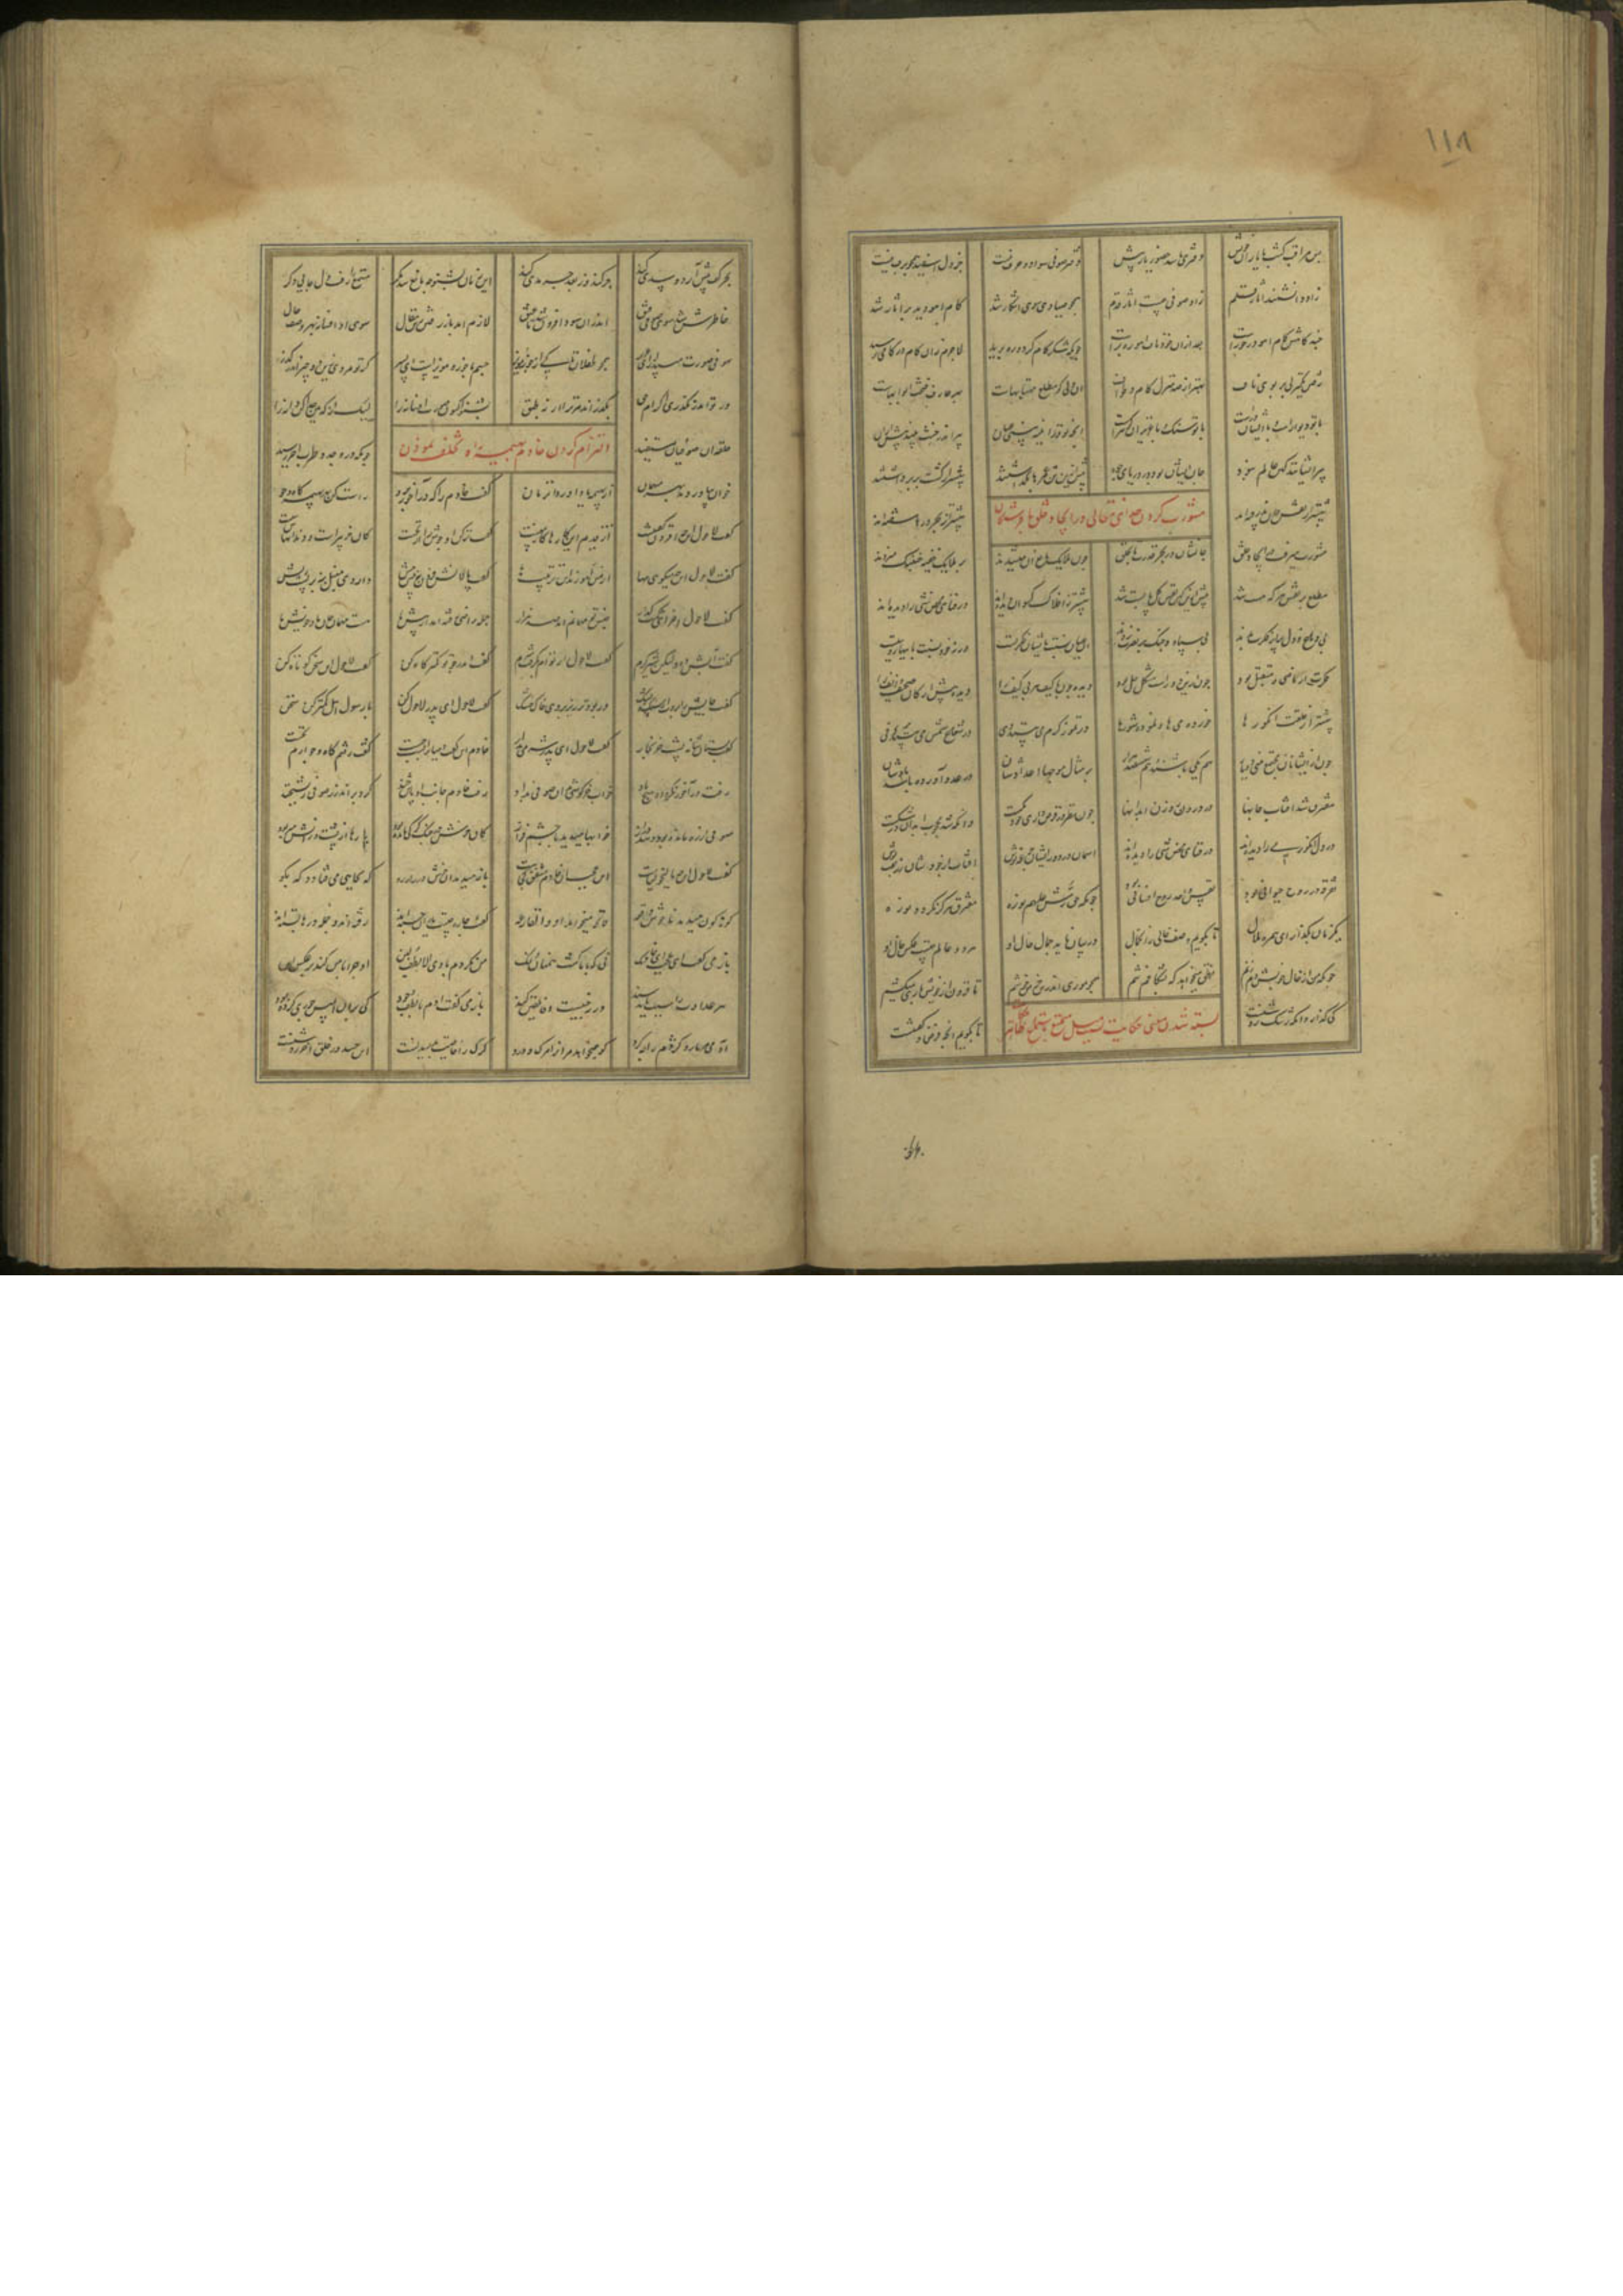 ۱۱۸
پس مراقب گشت با یاران خویش دفتری باشد حضور یار پیش دفتر صوفی سواد و حرف نیست جز دل اسپید همچون برف نیست
زاد دانشمند آثار قلم زاد صوفی چیست آثار قدم همچو صیادی سوی اشکار شد کام آهو دید بر آثار شد
چند کاهش کام آهو در خورست بعد از آن خود ناف آهو رهبرست چونکه شکر کام کرد و ره برید لاجرم زان کام در کامی رسید
رفتن یک منزلی بر بوی ناف بهتر از صد منزل کام و طواف آن دلی کو مطلع مهتابهاست بهر عارف فتحت ابوابهاست
با تو دیوارست و با ایشان درست با تو سنک و با عزیزان کوهرست آنچه تو در آینه بینی عیان پیر اندر خشت بیند پیش از آن
پیر ایشانند کین عالم نبود جان ایشان بود در دریای جود پیش ازین تن عمرها بگذاشتند پیشتر از کشت بر برداشتند
پیشتر از نقش جان پذرفته‌اند پیشتر از بحر درها سفته‌اند
مشورت کردن خدای تعالی در ایجاد خلق با فرشتگان
مشورت میرفت در ایجاد خلق جانشان در بحر قدرت تا بحلق چون ملایک مانع آن میشدند بر ملایک خفیه خنبک میزدند
مطلع بر نقش هر که هست شد پیش از آن کین نفس کل پابست شد پیشتر ز افلاک کیوان دیده‌اند در فنای محض شی را دیده‌اند
بی دماغ و دل پر از فکرت بدند بی سپاه و جنک بر نصرت زدند آن عیان نسبت بایشان فکرتست ورنه خود نسبت رویتست
فکرت از ماضی و مستقبل بود چون ازین دو رست مشکل حل شود دیده چون بی کیف هر با کیف را دیده پیش از کان صحیح و زیف را
پیشتر از خلقت انکورها خورده می ها و نموده شورها در تموز گرم می بینند دی در شعاع شمس می بینند فی
چون از ایشان مجتمع بینی دو یار هم یکی باشند و هم ششصد هزار بر مثال موجها اعدادشان در عدد آورده باشد بادشان
مفترق شد آفتاب جانها در درون روزن ابدانها چون نظر در قرص داری خود یکیست وانکه شد محجوب ابدان در شکیست
در دل انکور می را دیده‌اند در فنای محض شی را دیده‌اند آسمان در دور ایشان جرعه نوش آفتاب از جودشان زربفت پوش
تفرقه در روح حیوانی بود نفس واحد روح انسانی بود چونکه حق رش علیهم نوره مفترق هرگز نکردد نوره
یکزمان بگذار ای همره ملال تا بگویم وصف خالی زان جمال در بیان ناید جمال حال او هر دو عالم چیست عکس خال او
چونکه من از خال خوبش دم زنم نطق میخواهد که بشکافد تنم همچو موری اندرین خرمن خوشم تا فزون از خویش باری میکشم
کی گذارد آنکه رشک روشنیست تا بگویم آنچه فرض و گفتنیست
بسته شدن معنی حکایت بسبب میل مستمع باستماع ظاهر
بحر کف پیش آرد و سدی کند جر کند وز بعد جر مدی کند این زمان بشنو چه مانع شد مگر مستمع را رفت دل جای دکر
خاطرش شد سوی صوفی قنق اندر آن سودا فرو شد تا عنق لازم آمد باز رفتن زین مقال سوی آن افسانه بهر وصف حال
صوفی صورت مپندار ای عزیز همچو طفلان تا کی از جوز و مویز جسم ما جوز و مویزست ای پسر کر تو مردی زین دو چیز اندر گذر
ور تو اندر نگذری اکرام حق بگذراند مر ترا از نه طبق بشنو اکنون صورت افسانه را لیک از که جدا کن دانه را
التزام کردن خادم تیمار بهیمه را و تخلف نمودن
حلقه آن صوفیان مستفید چونکه در وجد و طرب آخر رسید
خوان بیاوردند بهر میهمان از بهیمه یاد آورد آن زمان گفت خادم را که در آخر برو راست کن بهر بهیمه کاه و جو
گفت لاحول این چه افزون گفتنست از قدیم این کارها کار منست گفت تر کن آن جوش را از نخست کان خر پیرست و دندانهاش سست
گفت لاحول این چه میگویی مها از من آموزند این ترتیبها گفت پالانش فرو نه پیش پیش داروی منبل بنه بر پشت ریش
گفت لاحول آخر ای حکمت گذار جنس تو مهمانم آمد صد هزار جمله راضی رفته‌اند از پیش ما هست مهمان جان ما و خویش ما
گفت آبش ده ولیکن شیر گرم گفت لاحول از توام بگرفت شرم گفت اندر جو تو کمتر کاه کن گفت لاحول این سخن کوتاه کن
گفت جایش را بروب از سنک و پشک ور بود تر ریز بر وی خاک خشک گفت لاحول ای پدر لاحول کن با رسول اهل کمتر کن سخن
گفت بستان شانه پشت خر بخار گفت لاحول ای پدر شرمی بدار خادم این گفت و میان را بست چست گفت رفتم کاه و جو آرم نخست
رفت و ز آخر نکرد او هیچ یاد خواب خرگوشی بدان صوفی بداد رفت خادم جانب اوباش چند کرد بر اندرز صوفی ریشخند
صوفی از ره مانده بود و شد دراز خوابها میدید با چشم فراز کان خرش در چنک گرگی مانده بود پارها از پشت و رانش میربود
گفت لاحول این چه مالیخولیاست ای عجب آن خادم مشفق کجاست باز میدید آن خرش در راه رو که بچاهی می فتاد و که بگو
گوناگون میدید ناخوش واقعه فاتحه میخواند او و القارعه گفت چاره چیست یاران جسته‌اند رفته‌اند و جمله درها بسته‌اند
باز می گفت ای عجب آن خادمک نی که با ما گشت هم نان و نمک من نکردم با وی الا لطف و لین او چرا با من کند برعکس کین
هر عداوت را سبب باید سند ورنه جنسیت وفا تلقین کند باز می گفت آدم با لطف و جود کی بر آن ابلیس جوری کرده بود
آدمی مر مار و کژدم را چه کرد کو همی خواهد مر او را مرگ و درد گرگ را خاصیت بدریدنست این حسد در خلق آخر روشنست